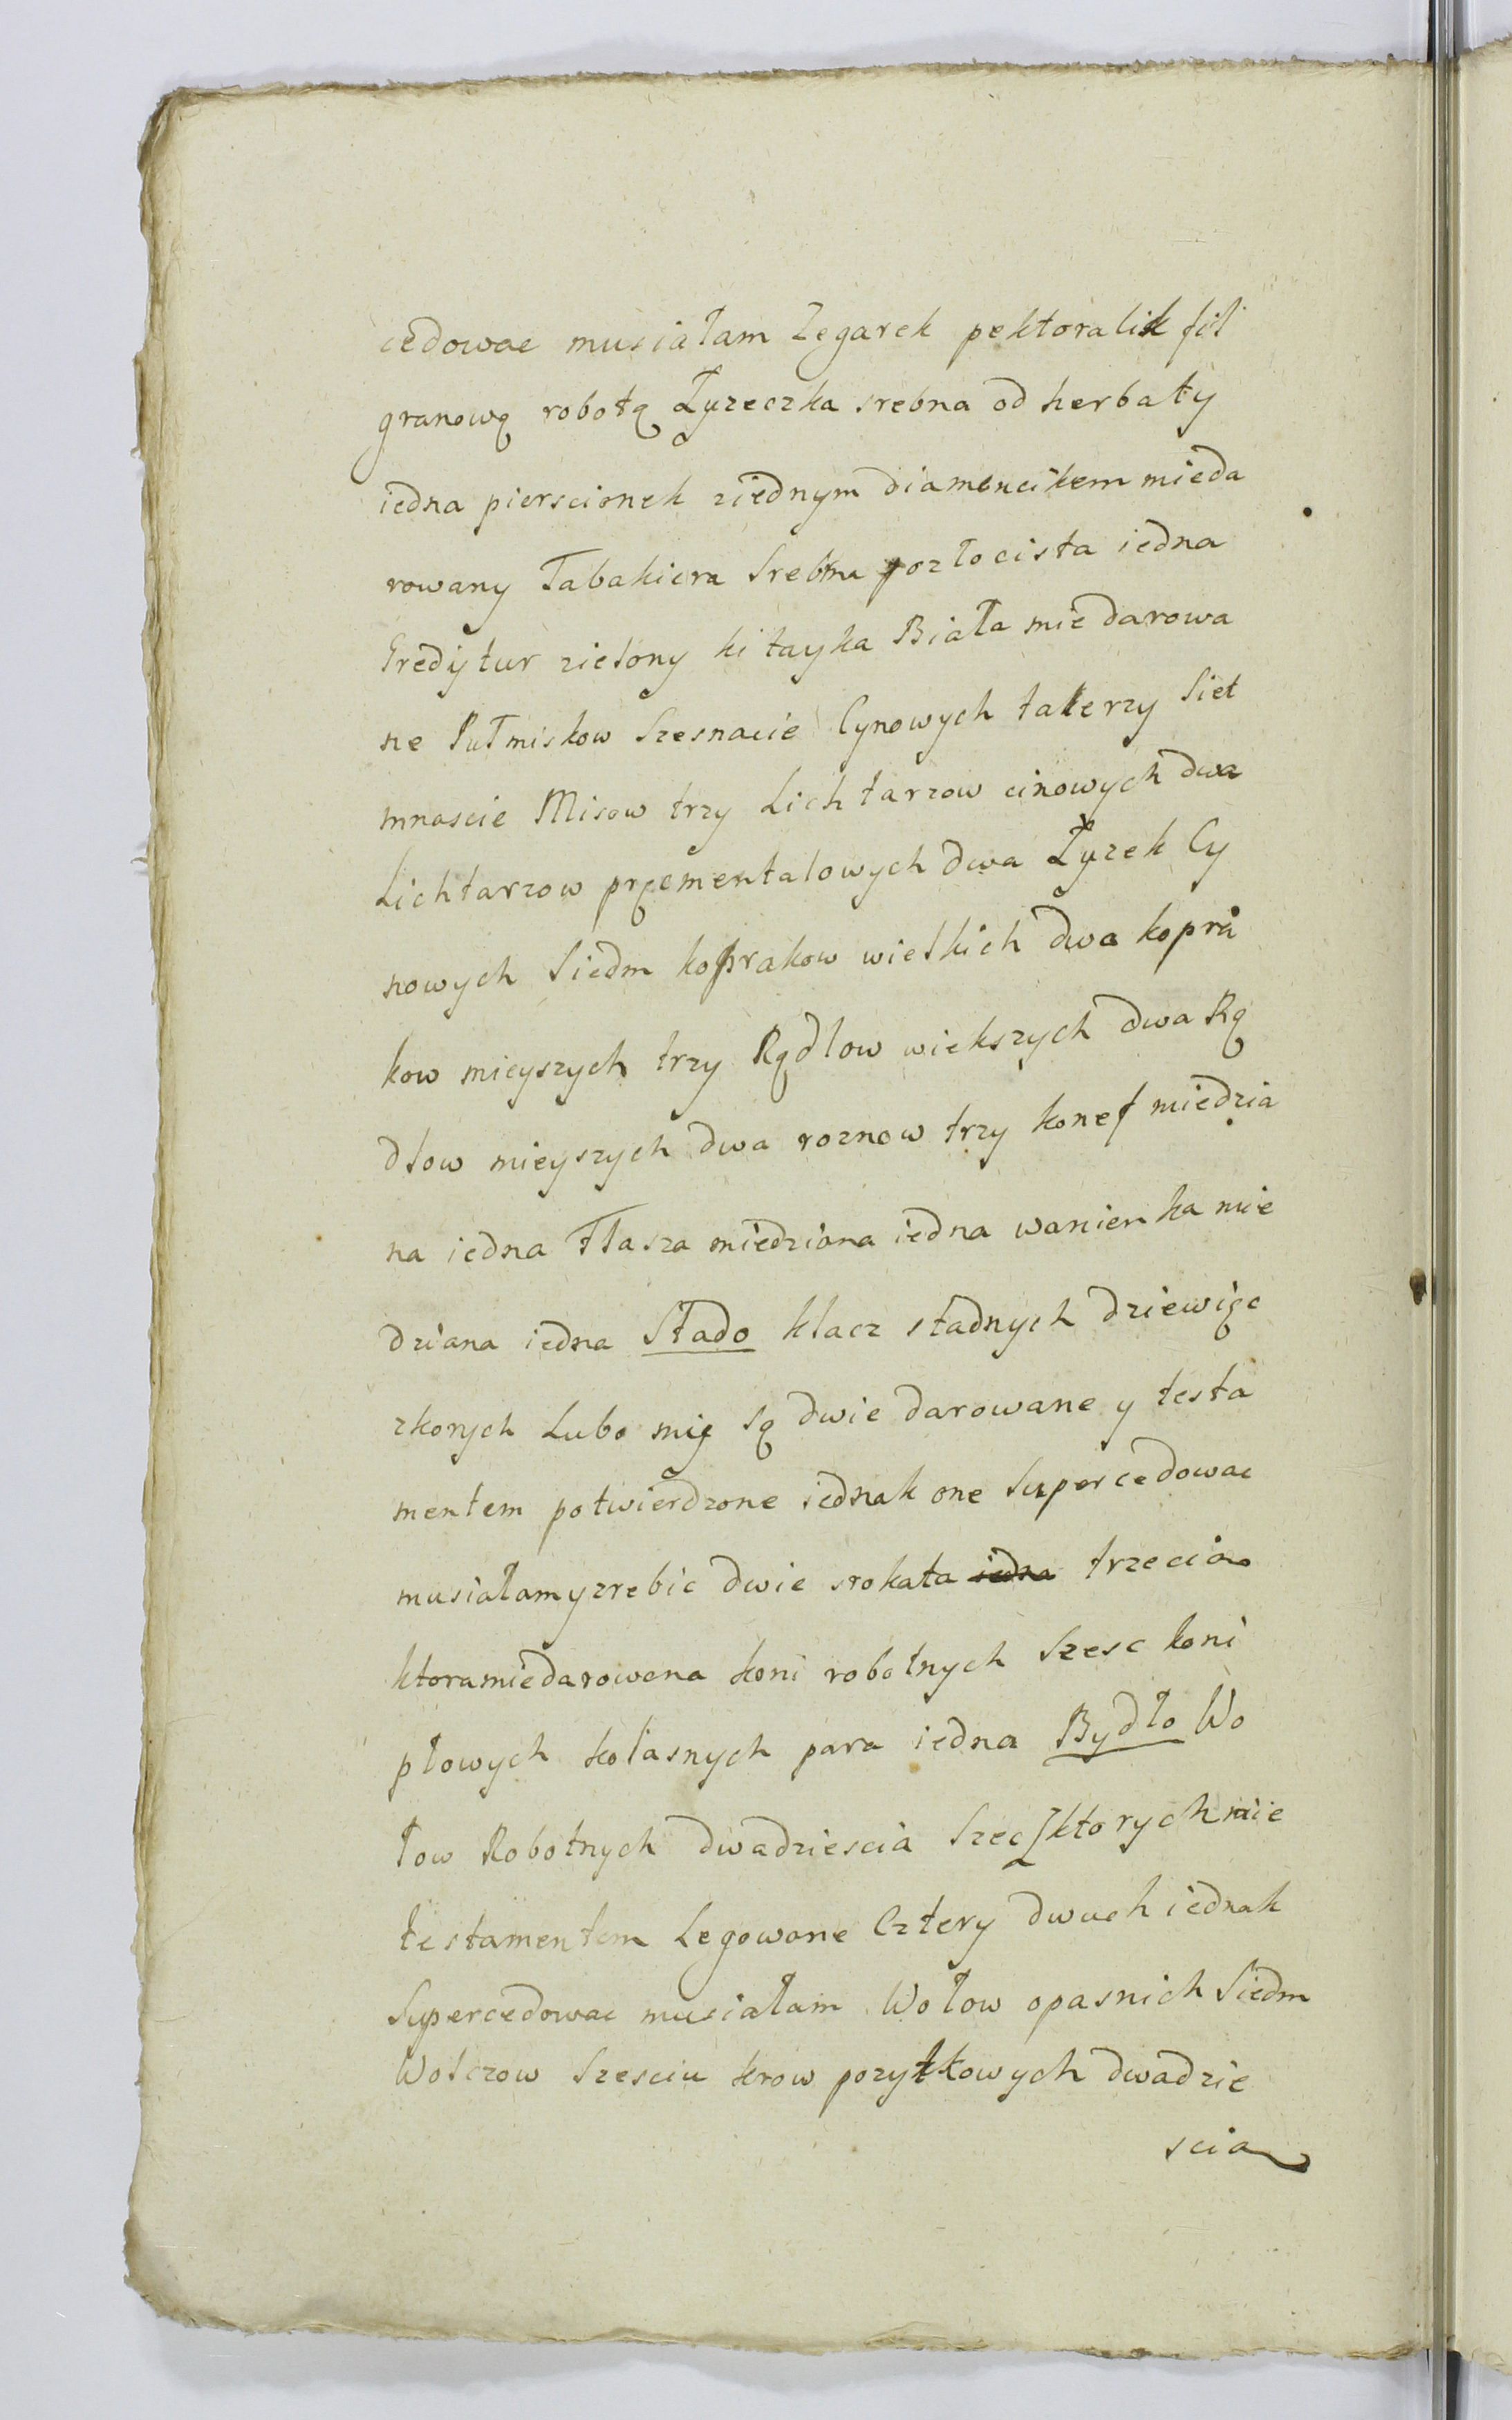 cedowac musiałam Zegarek pektoralik fil
granową robotą Łyzeczka srebna od herbaty
iedna pierscionek ziednym diamencikem mieda
rowany Tabakiera Srebna pozłocista iedna
Gredytur zielony kitayka Biała mie darowa
ne Pułmiskow Szesnacie Cynowych talerzy Siet
mnascie Misow trzy Lichtarzow cinowych dwa
Lichtarzow pręcmentalowych dwa Łyzek Cy
nowych Siedm koprakow wielkich dwa kopra
kow mieyszych trzy Rądlow wiekszych dwa Rą
dlow mieyszych dwa roznow trzy konef miedzia
na iedna Flasza miedziana iedna wanienka mie
dziana iedna Stado klacz stadnych dziewięc
zkorych Lubo mię są dwie darowane y testa
mentem potwierdzone iednak one Supercedowac
musiałam yzrebic dwie srokata iedna trzecia
ktoramiedarowana koni robotnych Szesc koni
płowych kolasnych para iedna Bydło Wo
łow Robotnych dwadziescia Szec Zktorych mie
testamentem Legowane Cztery dwuch iednak
Supercedowac musiałam Wołow opasnich Siedm
Wolczow Szesciu krow pozytkowych dwadzie
scia